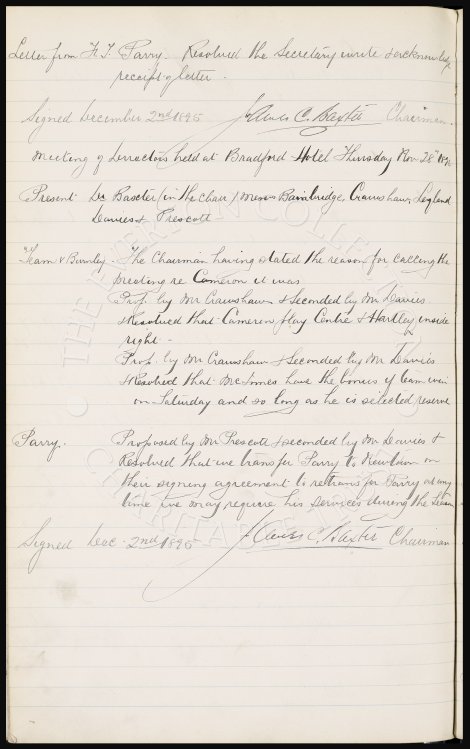 Letter from F. T. Parry. Resolved the Secretary write & acknowledge
receipt of letter.
Signed December 2nd 1895 James C. Baxter Chairman
Meeting of Directors held at Bradford Hotel Thursday Nov 28th 1895
Present Dr Baxter (in the chair) Messrs Bainbridge, Crawshaw, Leyland
Davies & Prescott
Team v Burnley The Chairman having stated the reason for calling the
meeting re Cameron it was
Prop. by Mr Crawshaw & Seconded by Mr Davies
& Resolved that Cameron play Centre & Hartley inside
right.
Prop. by Mr Crawshaw & Seconded by Mr Davies
& Resolved that McInnes have the bonus if team win
on Saturday and so long as he is selected reserve
Parry. Proposed by Mr Prescott & seconded by Mr Davies &
Resolved that we transfer Parry to Newtown on
their signing agreement to retransfer Parry at any
time we may require his services during the Season
Signed Dec. 2nd 1895 James C. Baxter Chairman
THE EVERTON COLLECTION
CHARITABLE